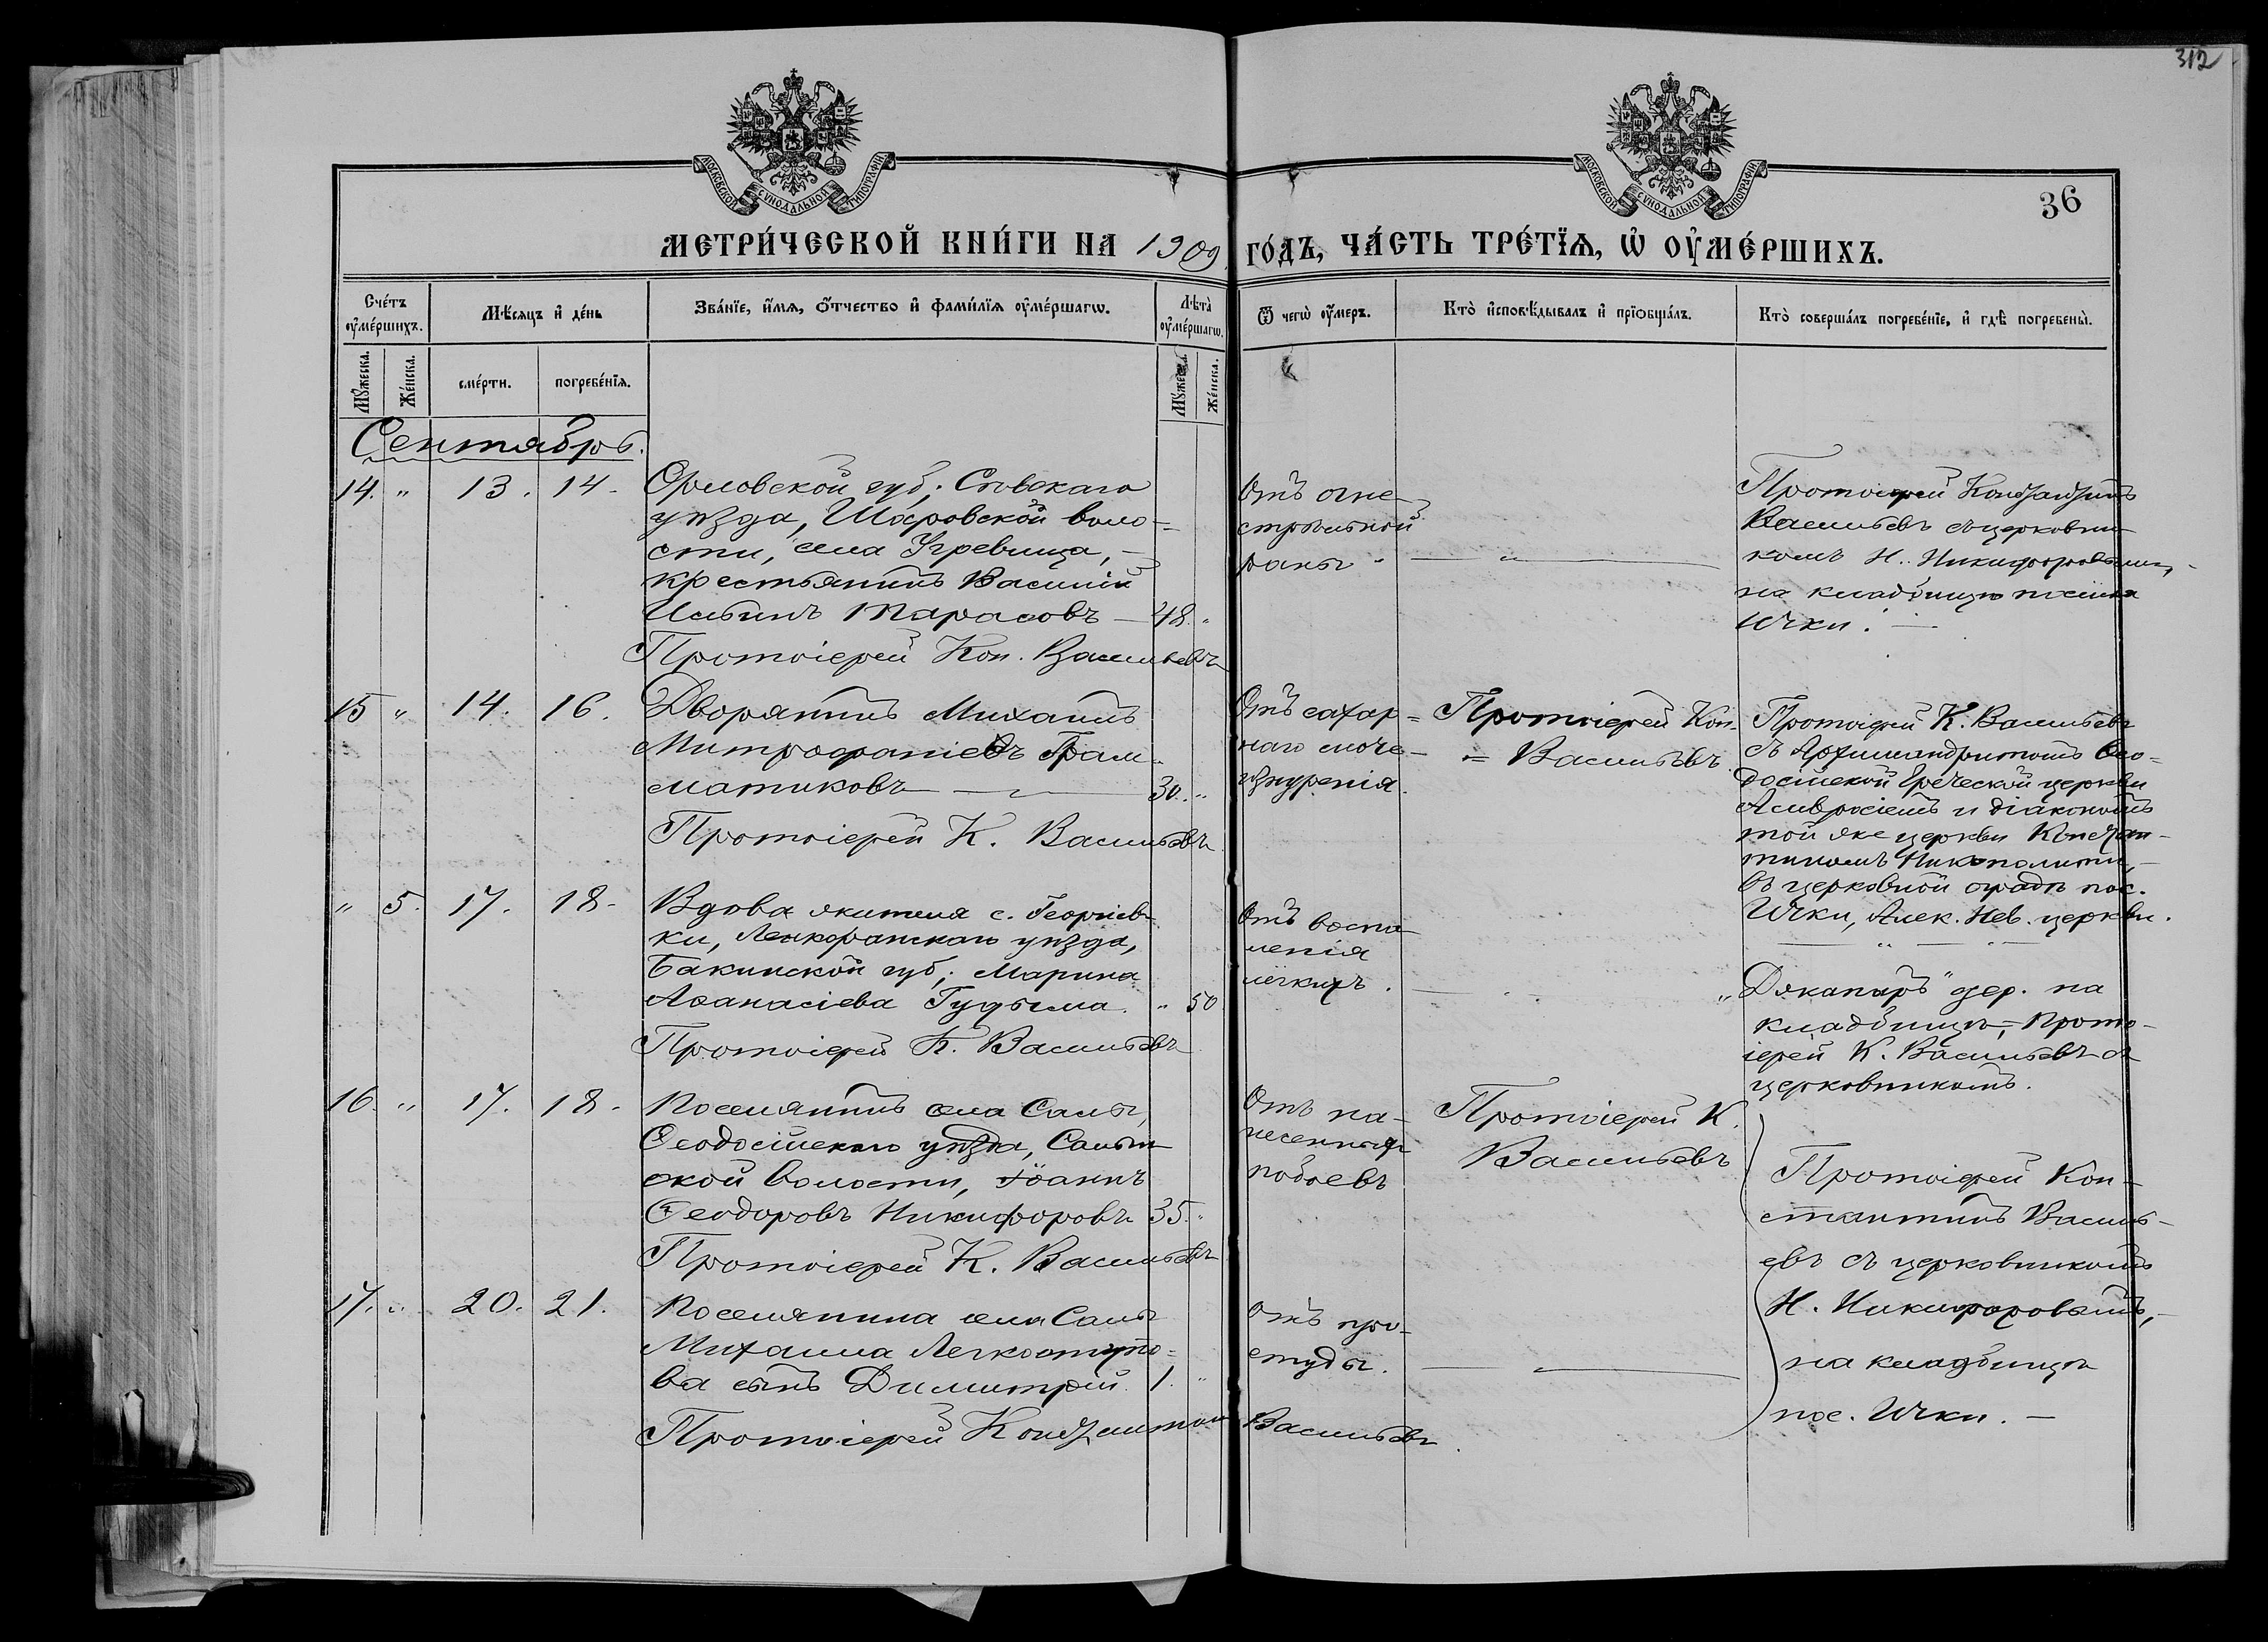 312
36
МОСКОВСКОЙ СѴНОДАЛЬНОЙ ТИПОГРАФІИ
МОСКОВСКОЙ СѴНОДАЛЬНОЙ ТИПОГРАФІИ
МЕТРИ́ЧЕСКОЙ КНИ́ГИ НА 1909 ГО́ДЪ, ЧА́СТЬ ТРЕ́ТЇѦ, Ѡ҆ ОУ҆МЕ́РШИХЪ.
Сче́тъ оу҆ме́ршихъ.
Мѣ́сяцъ и҆ де́нь
Зва́нїе, и҆́мѧ, ѻ҆́тчество и҆ фами́лїѧ оу҆ме́ршагѡ.
Лѣ́та оу҆ме́ршагѡ.
Ѿ чегѡ̀ оу҆́меръ.
Кто̀ и҆сповѣ́дывалъ и҆ прїѡбща́лъ.
Кто̀ соверша́лъ погребе́нїе, и҆ гдѣ̀ погребены̀.
Мꙋ́жеска.
Же́нска.
сме́рти.
погребе́нїѧ.
Мꙋ́жеска.
Же́нска.
Сентябрь.
14. " 13. 14.
Орловской губ., Сѣвскаго
уѣзда, Шаровской воло-
сти, села Угревища,
крестьянинъ Василій
Ильинъ Тарасовъ — 48. "
Протоіерей Кон. Васильевъ
Отъ огне-
стрѣльной
раны "
— " —
Протоіерей Константинъ
Васильевъ съ церковни-
комъ Н. Никифоровымъ,
на кладбищѣ поселка
Ички. —
15 " 14. 16.
Дворянинъ Михаилъ
Митрофаніевъ Грам-
матиковъ — 30. "
Протоіерей К. Васильевъ
Отъ сахар=
наго моче-
изнуренія.
Протоіерей Кон.
= Васильевъ.
Протоіерей К. Васильевъ
съ Архимандритомъ Ѳео=
досійской Греческой церкви
Амвросіемъ и діакономъ
той же церкви Констан-
тиномъ
въ церковной оградѣ пос.
Ички, Алек. Нев. церкви.
— " — " —
" 5. 17. 18.
Вдова жителя с. Георгіев-
ки, Ленкоранскаго уѣзда,
Бакинской губ., Марина
Аѳанасіева Гудыма. " 50
Протоіерей К. Васильевъ
Отъ воспа-
ленія
легкихъ.
— " —
"Джапаръ" дер. на
кладбищѣ, — Прото-
іерей К. Васильевъ съ
церковникомъ.
16. " 17. 18.
Поселянинъ села Салы,
Ѳеодосійскаго уѣзда, Салын-
ской волости, Іоаннъ
Ѳеодоровъ Никифоровъ 35. "
Протоіерей К. Васильевъ
Отъ на-
несенныхъ
побоевъ
Протоіерей К.
Васильевъ
Протоіерей Кон-
стантинъ Василь-
евъ съ церковникомъ
Н. Никифоровымъ, —
на кладбищѣ
пос. Ички. —
17. " 20. 21.
Поселянина села Салы
Михаила Легкоступо=
ва сынъ Димитрій. 1. "
Отъ про-
студы.
— " —
Протоіерей Константинъ Васильевъ.